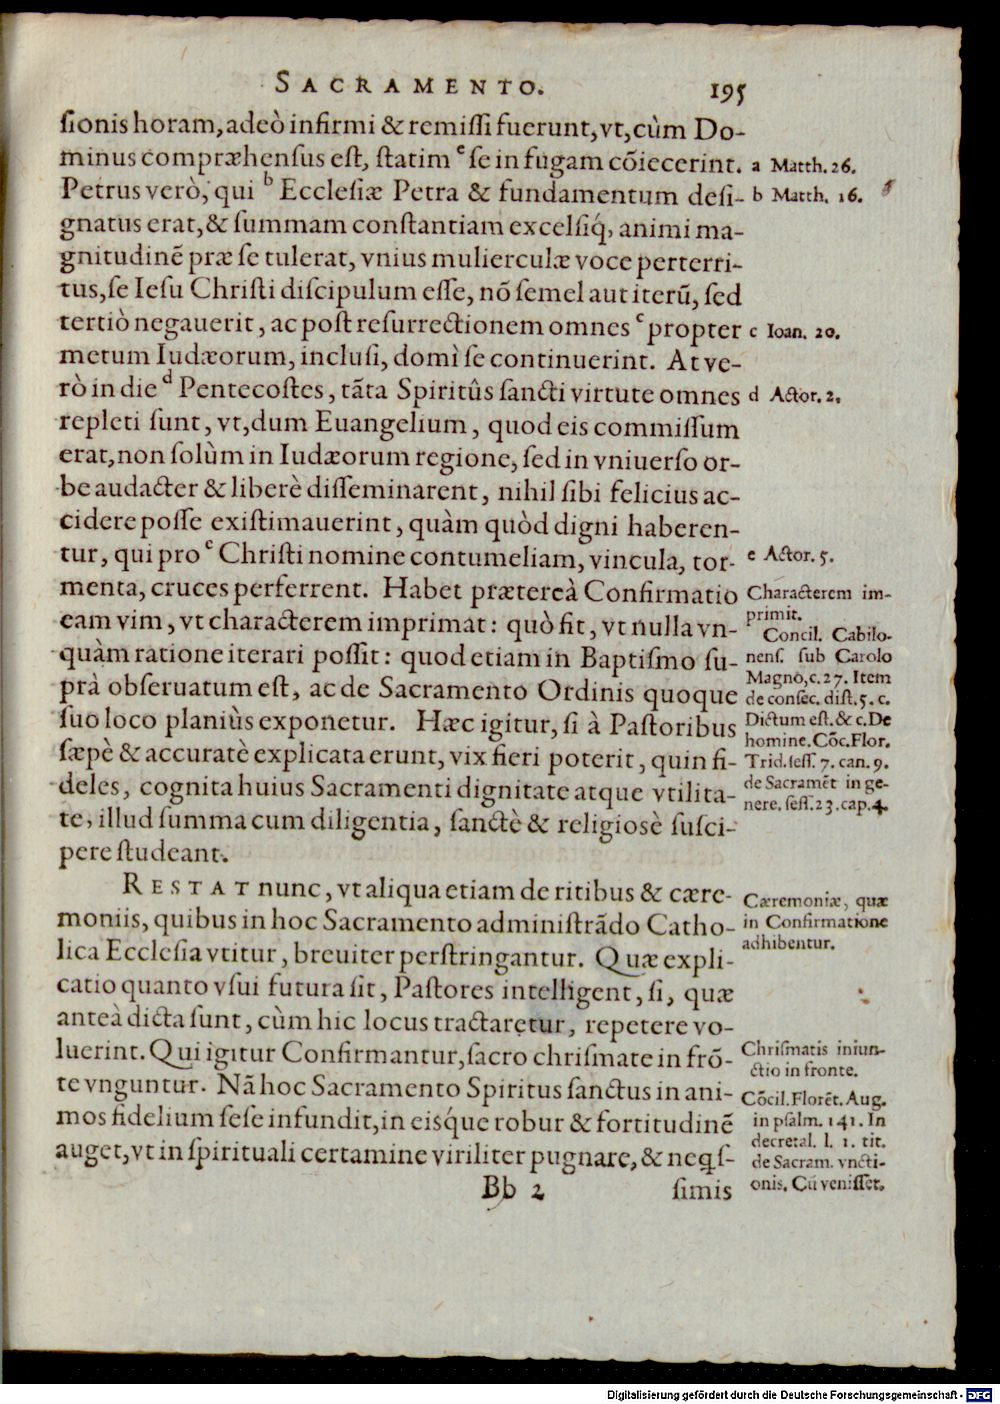 SACRAMENTO. 195
ſionis horam, adeò infirmi & remiſſi fuerunt, vt, cùm Do-
minus compræhenſus eſt, ſtatim ᵉ ſe in fugam cõiecerint.
Petrus verò, qui ᵇ Eccleſiæ Petra & fundamentum deſi-
gnatus erat, & ſummam conſtantiam excelſiq́, animi ma-
gnitudinẽ præ ſe tulerat, vnius mulierculæ voce perterri-
tus, ſe Ieſu Chriſti diſcipulum eſſe, nõ ſemel aut iterũ, ſed
tertiò negauerit, ac poſt reſurrectionem omnes ᶜ propter
metum Iudæorum, incluſi, domì ſe continuerint. At ve-
rò in die ᵈ Pentecoſtes, tãta Spiritûs ſancti virtute omnes
repleti ſunt, vt, dum Euangelium, quod eis commiſſum
erat, non ſolùm in Iudæorum regione, ſed in vniuerſo or-
be audacter & liberè diſſeminarent, nihil ſibi felicius ac-
cidere poſſe exiſtimauerint, quàm quòd digni haberen-
tur, qui pro ᵉ Chriſti nomine contumeliam, vincula, tor-
menta, cruces perferrent. Habet prætereà Confirmatio
eam vim, vt characterem imprimat: quò fit, vt nulla vn-
quàm ratione iterari poſſit: quod etiam in Baptiſmo ſu-
prà obſeruatum eſt, ac de Sacramento Ordinis quoque
ſuo loco planiùs exponetur. Hæc igitur, ſi à Paſtoribus
ſæpè & accuratè explicata erunt, vix fieri poterit, quin fi-
deles, cognita huius Sacramenti dignitate atque vtilita-
te, illud ſumma cum diligentia, ſanctè & religiosè ſuſci-
pere ſtudeant.
RESTAT nunc, vt aliqua etiam de ritibus & cære-
moniis, quibus in hoc Sacramento adminiſtrãdo Catho-
lica Eccleſia vtitur, breuiter perſtringantur. Quæ expli-
catio quanto vſui futura ſit, Paſtores intelligent, ſi, quæ
anteà dicta ſunt, cùm hic locus tractaretur, repetere vo-
luerint. Qui igitur Confirmantur, ſacro chriſmate in frõ-
te vnguntur. Nã hoc Sacramento Spiritus ſanctus in ani-
mos fidelium ſeſe infundit, in eiśque robur & fortitudinẽ
auget, vt in ſpirituali certamine viriliter pugnare, & neqſ-
Bb 2 ſimis
a Matth. 26.
b Matth. 16.
c Ioan. 20.
d Actor. 2.
e Actor. 5.
Characterem im-
primit.
Concil. Cabilo-
nenſ. ſub Carolo
Magno, c. 27. Item
de conſec. diſt. 5. c.
Dictum eſt. & c. De
homine. Cõc. Flor.
Trid. ſeſſ. 7. can. 9.
de Sacramẽt in ge-
nere. ſeſſ. 23. cap. 4.
Cæremoniæ, quæ
in Confirmatione
adhibentur.
Chriſmatis iniun-
ctio in fronte.
Cõcil. Florẽt. Aug.
in pſalm. 141. In
decretal. l. 1. tit.
de Sacram. vncti-
onis. Cũ veniſſet.
Digitalisierung gefördert durch die Deutsche Forschungsgemeinschaft - DFG